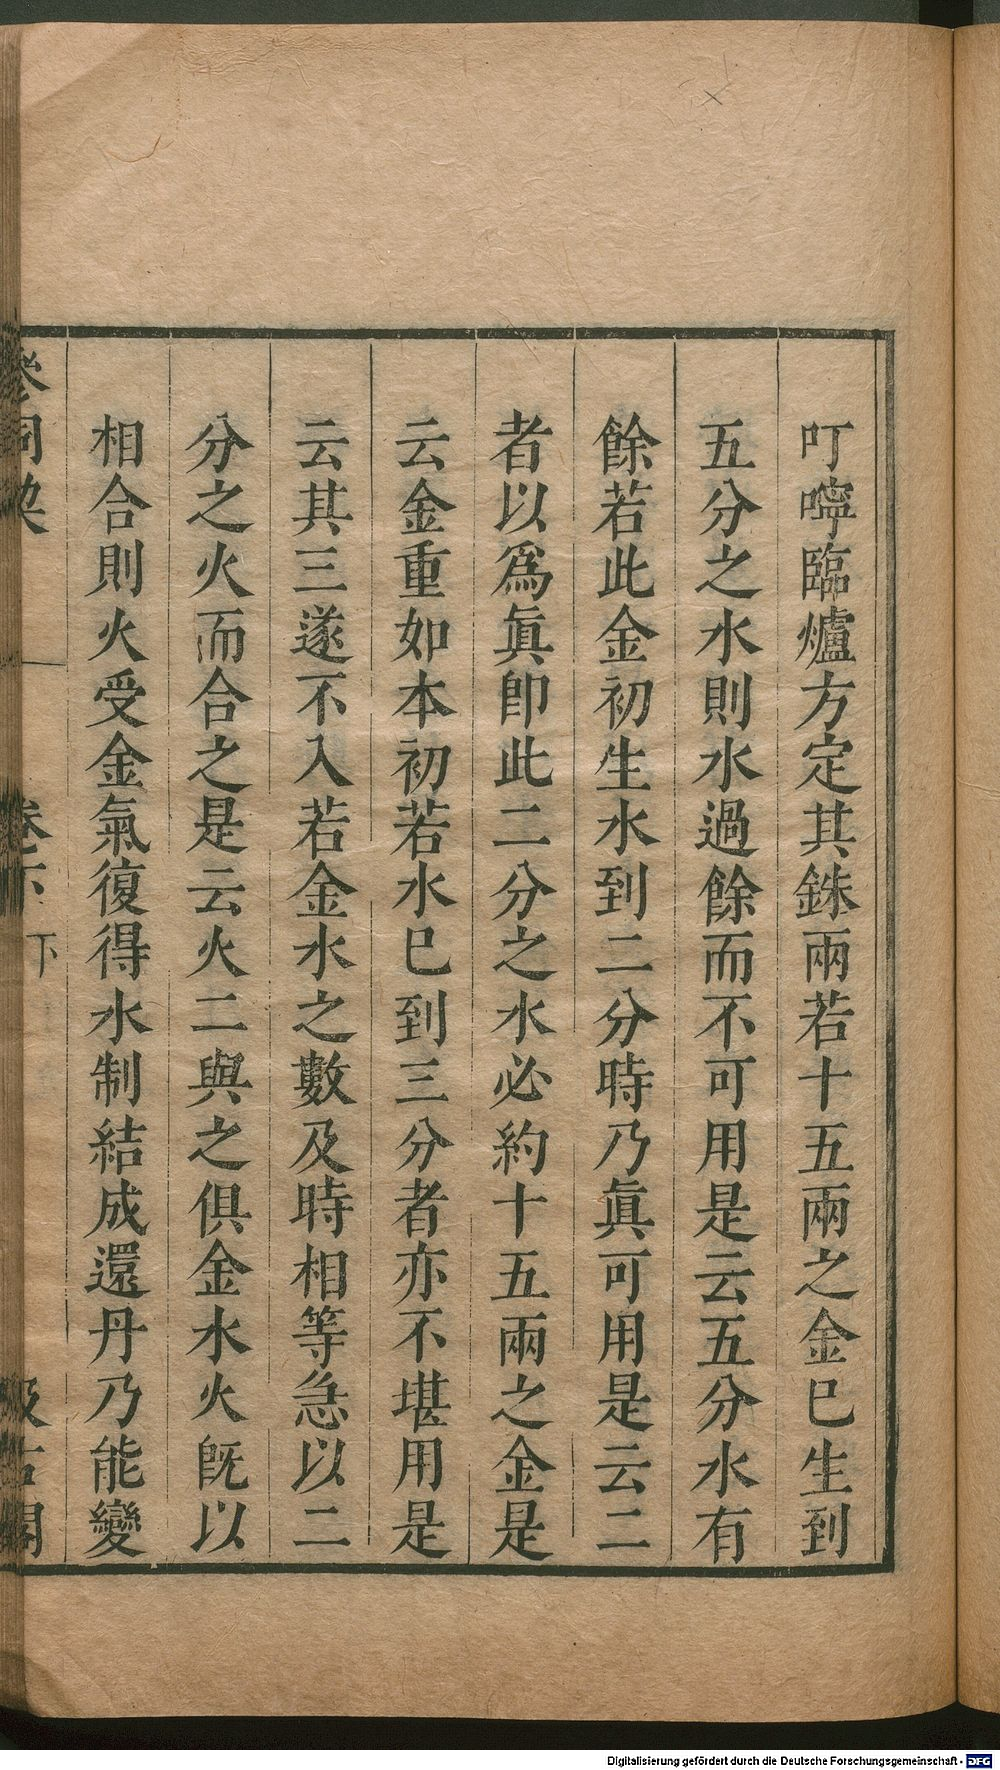 叮嚀臨爐方定其銖兩若十五兩之金巳生到
五分之水則水過餘而不可用是云五分水有
餘若此金初生水到二分時乃眞可用是云二
者以爲眞卽此二分之水必約十五兩之金是
云金重如本初若水巳到三分者亦不堪用是
云其三遂不入若金水之數及時相等急以二
分之火而合之是云火二與之俱金水火旣以
相合則火受金氣復得水制結成還丹乃能變
卷六 下
Digitalisierung gefördert durch die Deutsche Forschungsgemeinschaft - DFG